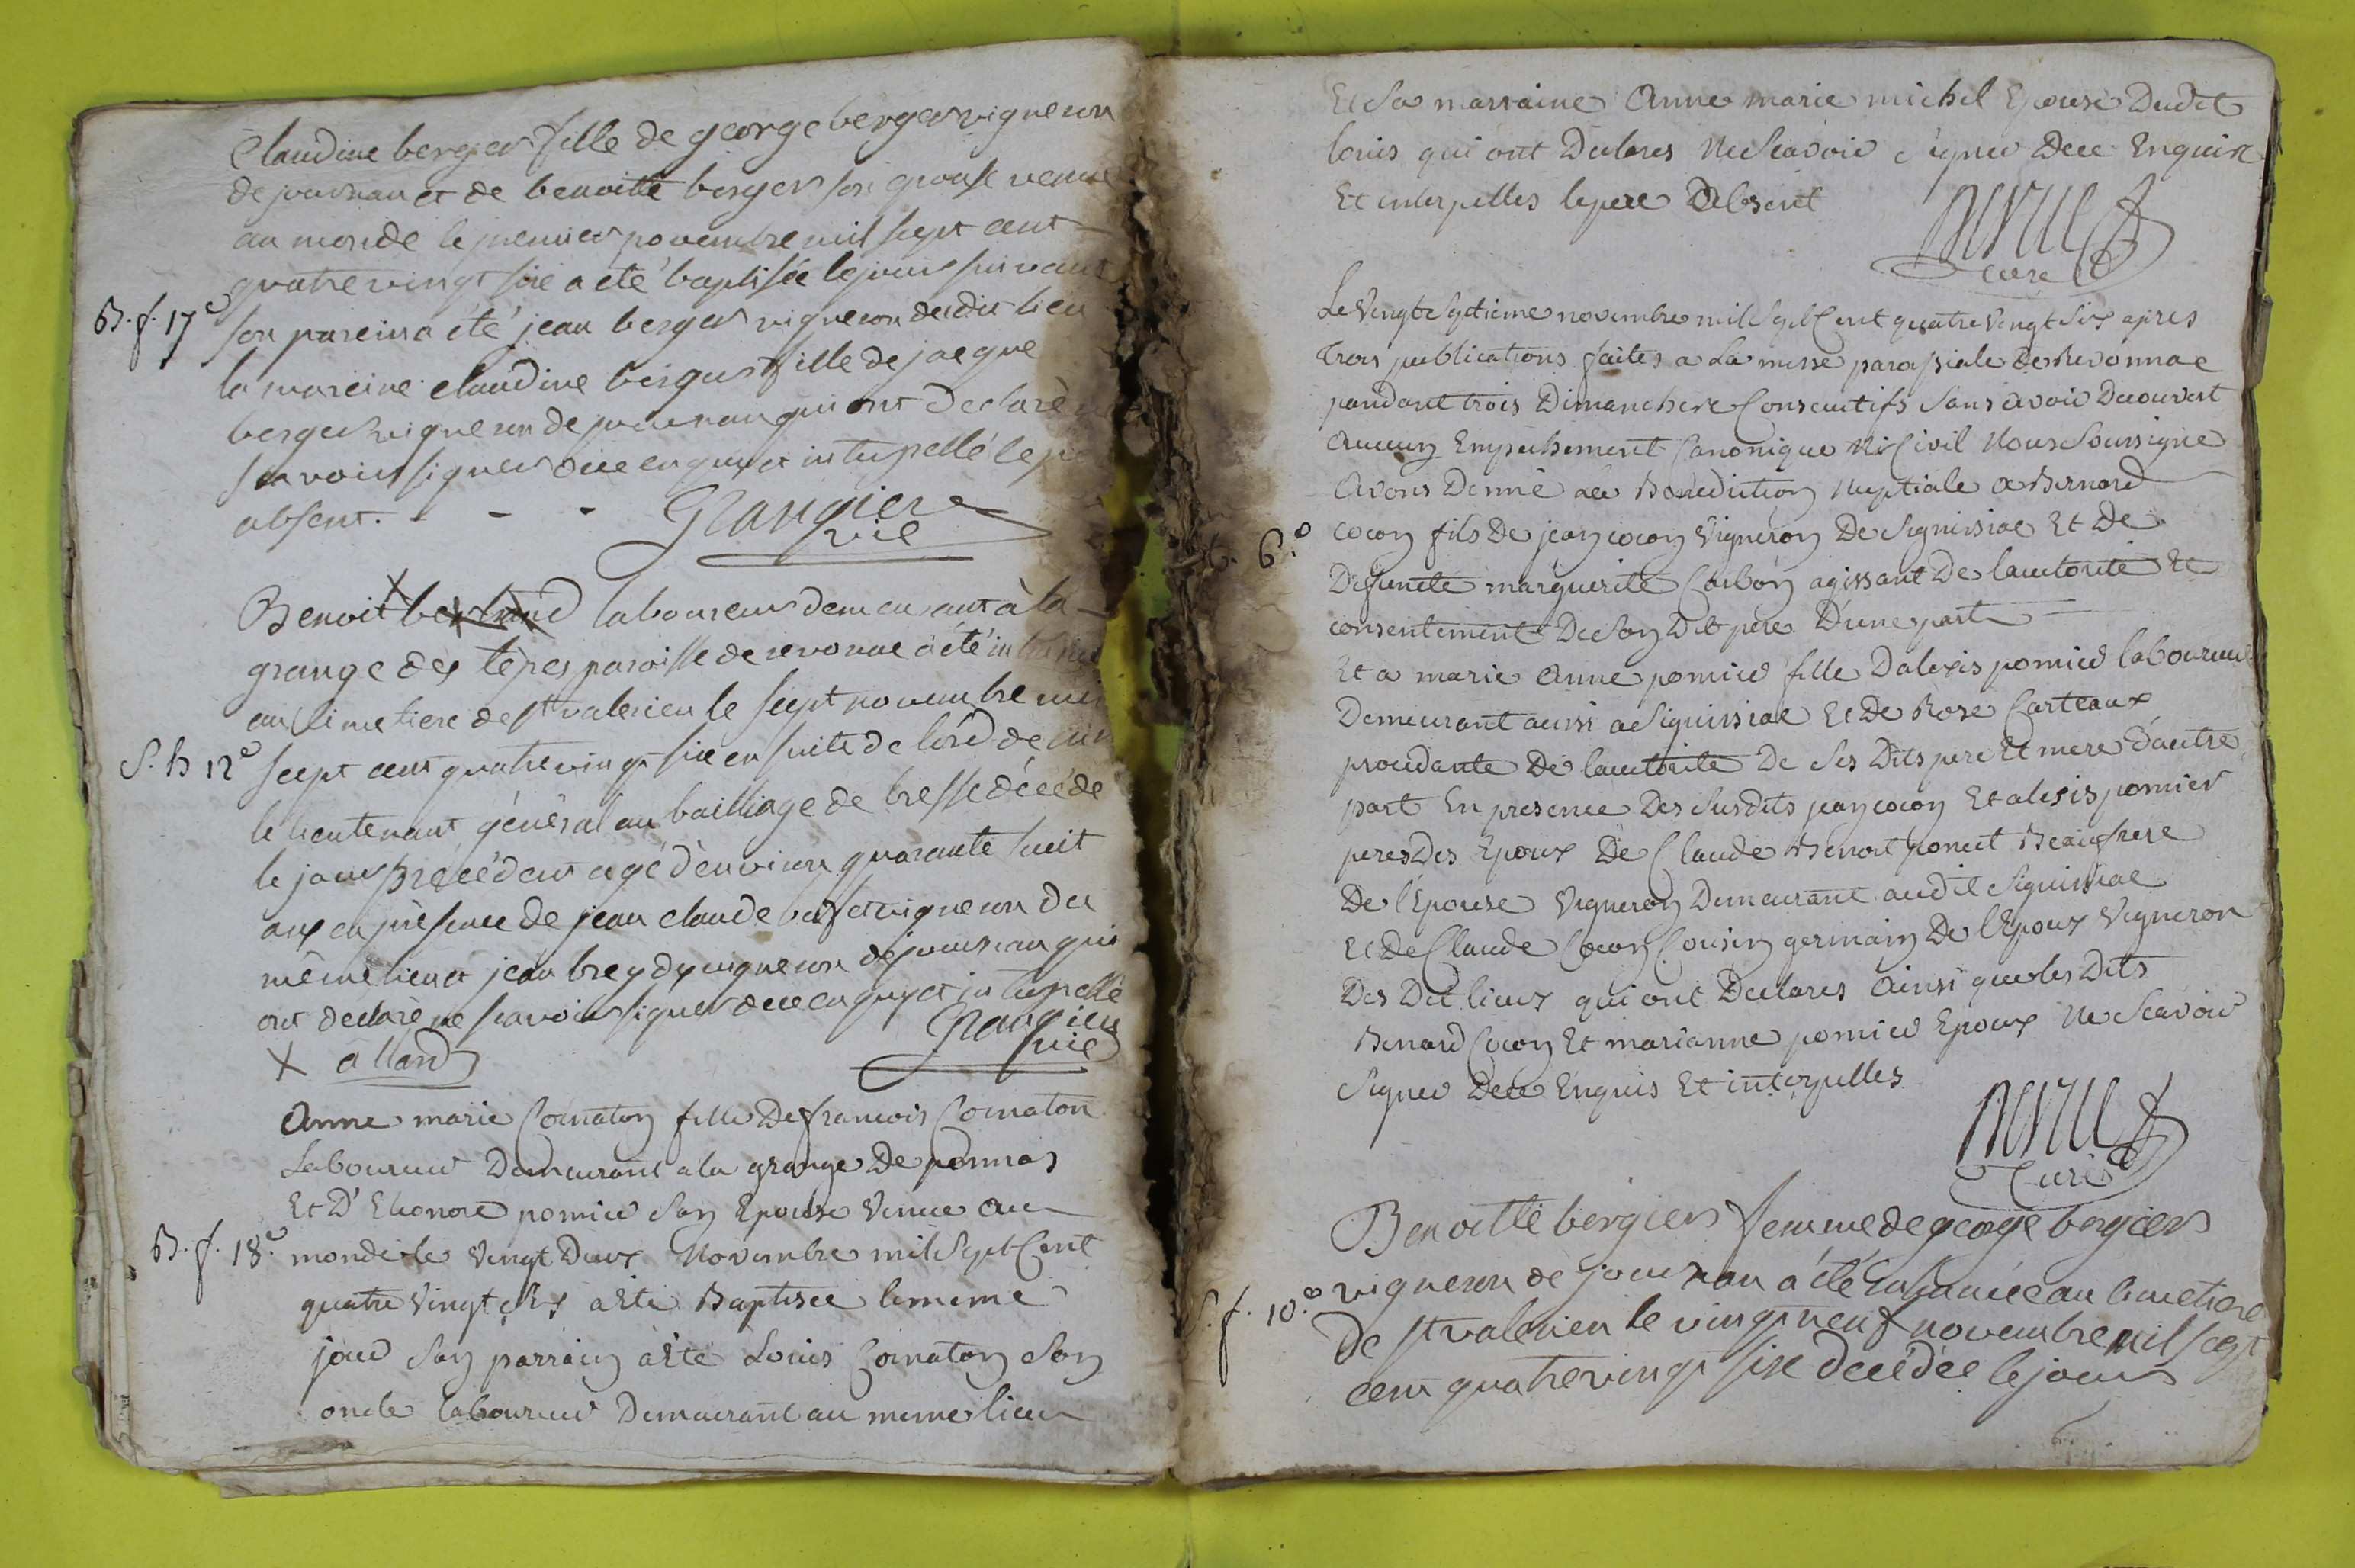 Claudine berger fille de george berger vigneron
de journan et de benoitte berger son epouse venue
au monde le premier novembre mil sept cent
quatre vingt six a eté baptisée le jour suivant
B. f. 17e son parein a été jean berger vigneron dudit lieu
la mareine claudine berger fille de jacque
berger vigneron de journan qui ont declaré
scavoir signer de ce enquis et interpellé le
absent. - - - Grangier
vic
Benoit X laboureur demeurant à la
grange des tepes paroisse de revonac a été
au cimetiere de st valerien le sept novembre
S. h 12e sept cent quatre vingt six en suite de lord de
le lieutenant général au bailliage de bresse décédé
le jour précédent agé d'environ quarante huit
ans en présence de jean claude vigneron du
même lieu et jean breydy vigneron de journan qui
ont declaré ne scavoir signer de ce enquis et interpellé
Grangier
vic
X allard
Anne marie Cornaton fille De francois Cornaton
Laboureur Demeurant a la grange De ponnas
Et D'Eleonore pomier son Epouse Venue au
B. f. 18e monde le Vingt Deux Novembre mil Sept Cent
quatre Vingt six a Eté Baptisée le meme
jour son parrain a Eté Louis Cornaton son
oncle laboureur Demeurant au meme lieu
Et sa marraine Anne marie michel Epouse Dudit
louis qui ont Declares Ne Scavoir signer De ce Enquis
Et interpelles le pere Absent
curé
Le Vingt Septieme novembre mil Sept Cent quatre Vingt Six apres
Trois publications faites a La messe paroissiale de Revonnac
pandant trois Dimanchere Consecutifs sans avoir Decouvert
Aucun Empechement Canonique Ni Civil Nous Soussigné
Avons Donné la Benediction Nuptiale a Bernard
6.o cocon fils De jean cocon Vigneron De Signissiac Et De
Defuncte marguerite Carbon agissant De lauthorité Et
consentement De son Dit pere D'une part
Et a marie Anne pomier fille Dalexis pomier laboureur
Demeurant aussi a Signissiac Et De Rose Carteaux
procedante De lauthorité De Ses Dits pere Et mere d'autre
part En presence Des Susdits jean cocon Et alexis pomier
peres Des Epoux De Claude Benoit poncet Beaufrere
De l'Epouse Vigneron Demeurant audit Signissiac
Et De Claude Cocon Cousin germain De l'Epoux Vigneron
Des Dit lieux qui ont Declares Ainsi que les Dits
Bernard Cocon Et marianne pomier Epoux Ne Scavoir
Signer De ce Enquis Et interpelles
Curé
Benoitte bergier femme de george bergier
S. f. 10.e vigneron de journan a été inhumée au cimetiere
de st valerien le vingt neuf novembre mil sept
cent quatre vingt six decédée le jour